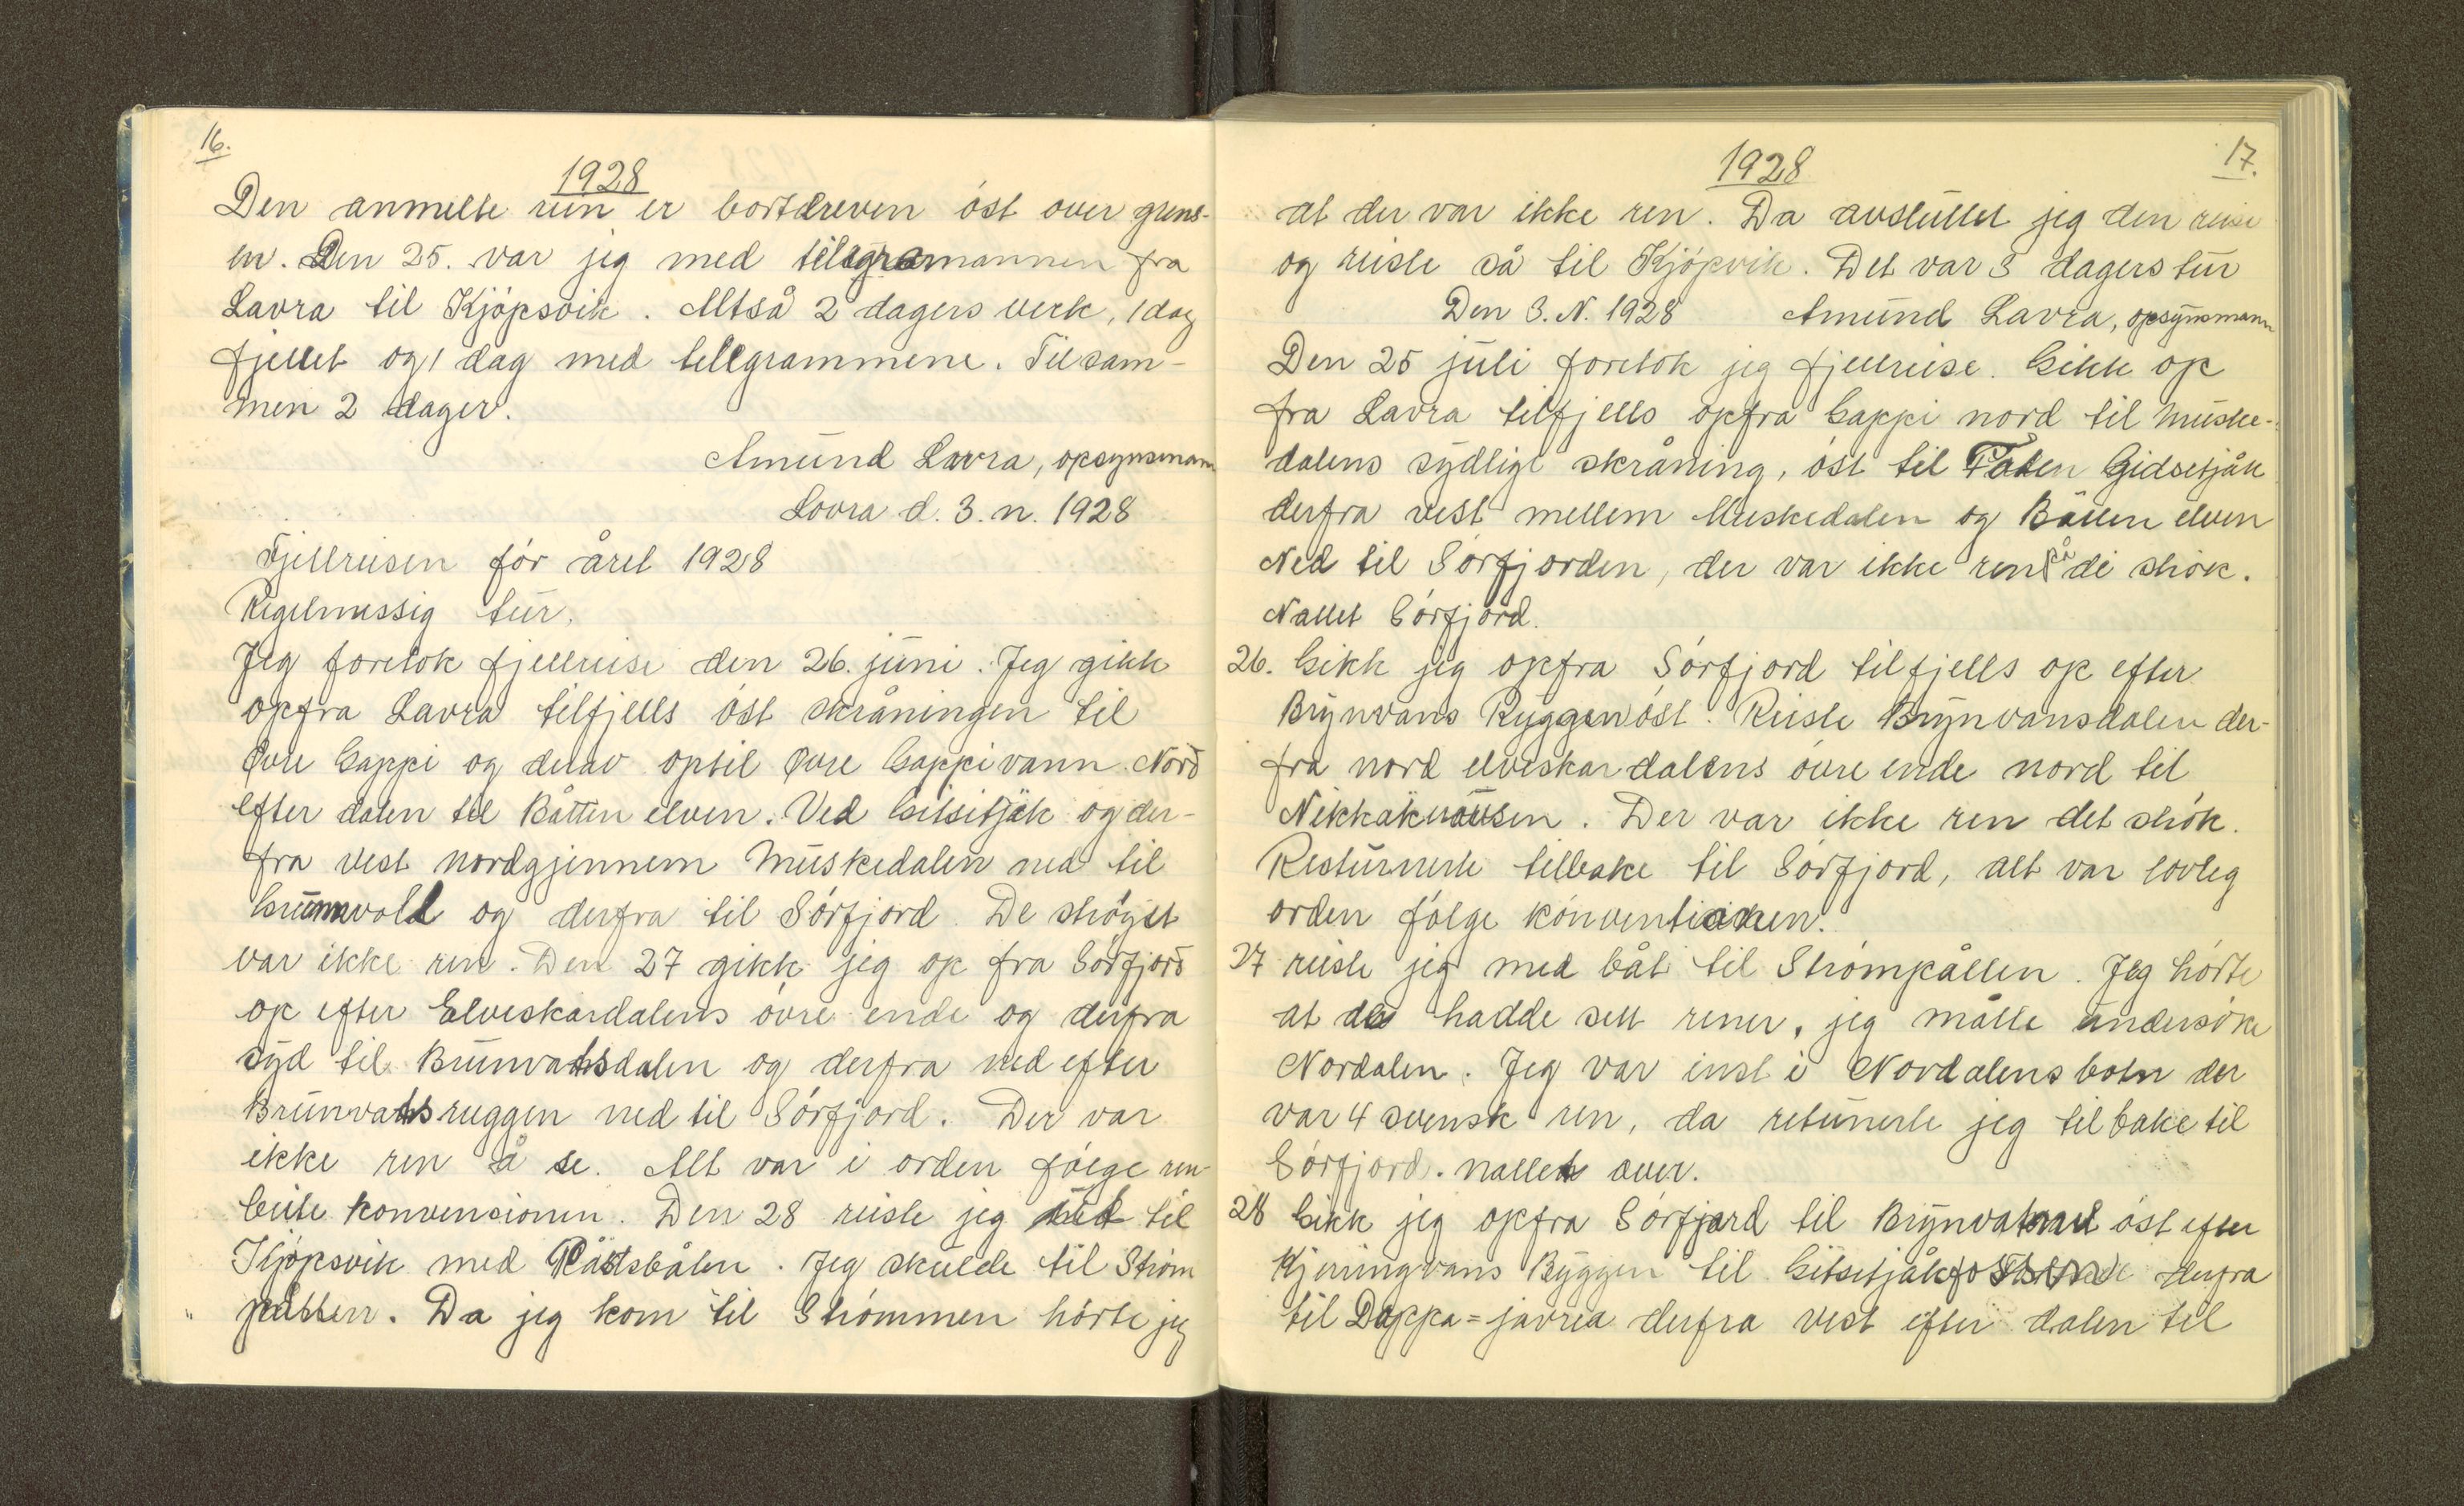 16.
1928
Den anmelte rein er bortdreven öst over grens-
en. Den 25. var jeg med telegramannen fra
Lavra til Kjöpsvik. Altså 2 dagers verk, 1 dag
fjellet og 1 dag med tellgrammene. Tilsam-
men 2 dager.
Amund Lavra, opsynsmann
Lovra d. 3. n. 1928
Fjellreisen för året 1928
Regelmessig tur.
Jeg foretok fjellreise den 26. juni. Jeg gikk
opfra Lavra tilfjells öst skråningen til
Øvre Gappi og derav optil Øvre Gappivann. Nord
efter dalen til Båtten elven. Ved Gitsitjåk og der-
fra vest nordgjennem Muskedalen ned til
Grunnvoll og derfra til Sörfjord. De ströget
var ikke ren. Den 27 gikk jeg op fra Sörfjord
op efter Elveskardalens övre ende og derfra
syd til Brunvatsdalen og derfra ned efter
Brunvatsruggen ned til Sörfjord. Der var
ikke ren å se. Alt var i orden fölge ren-
beite konvensionen. Den 28 reiste jeg til
Kjöpsvik med Råstsbåten. Jeg skulde til Ström
påtten. Da jeg kom til Strömmen hörte jeg
17.
1928
at der var ikke ren. Da avsluttet jeg den reise
og reiste så til Kjöpvik. Det var 3 dagers tur
Den 3. N. 1928 Amund Lavra, opsynsmann
Den 25 juli foretok jeg fjellreise. Gikk op
fra Lavra tilfjells opfra Gappi nord til Muske-
dalens sydlige skråning, öst til Foten Gidsetjåk
derfra vest mellem Muskedalen og Båtten elven
Ned til Sörfjorden, der var ikke ren på di strök.
Nattet Sörfjord.
26. Gikk jeg opfra Sörfjord tilfjells op efter
Brynvans Ryggen öst. Reiste Brynvansdalen der-
fra nord elveskardalens övre ende nord til
. Der var ikke ren det strök.
Resturnerte tilbake til Sörfjord, alt var lovleg
orden fölge konventionen.
27 reiste jeg med båt til Strömpåtten. Jeg hörte
at de hadde sett rener, jeg måtte undersöke
Nordalen. Jeg var inst i Nordalens botn der
var 4 svensk ren, da returnerte jeg tilbake til
Sörfjord. nattet over.
28 Gikk jeg opfra Sörfjord til Brynvatnet öst efter
Kjerringvans Ryggen til Gitsetjåk derfra
til Doppa=javrea derfra vest efter dalen til